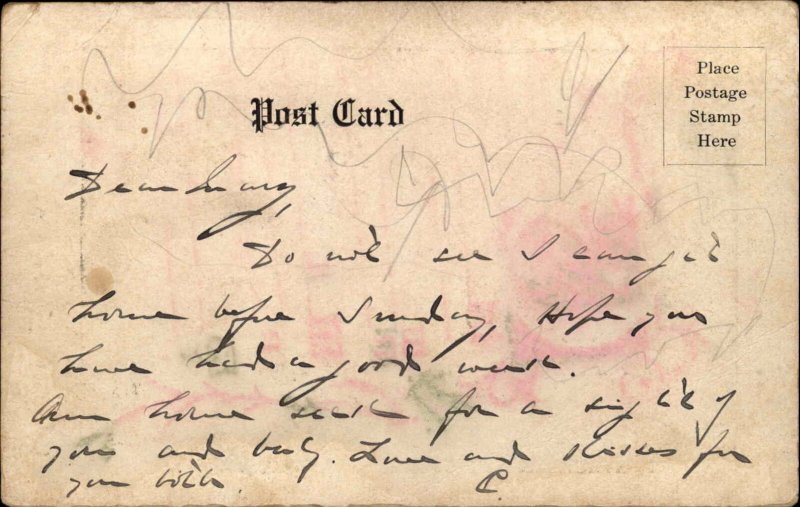 Post Card
Place
Postage
Stamp
Here
Dear Mary,
Do not see I can get
home before Sunday, Hope you
have had a good week.
Am home sick for a sight of
you and baby. Love and kisses for
you both. C.